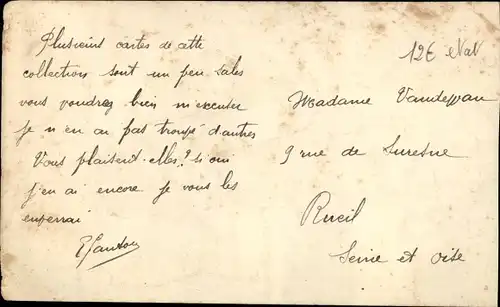 Plusieurs cartes de cette
collection sont un peu sales
vous voudrez bien m'excuser
je n en ai pas trouvé d'autres
Vous plaisent-elles? si oui
j'en ai encore je vous les
enverrai
12€
Madame
9 rue de Suresne
Rueil
Seine et Oise